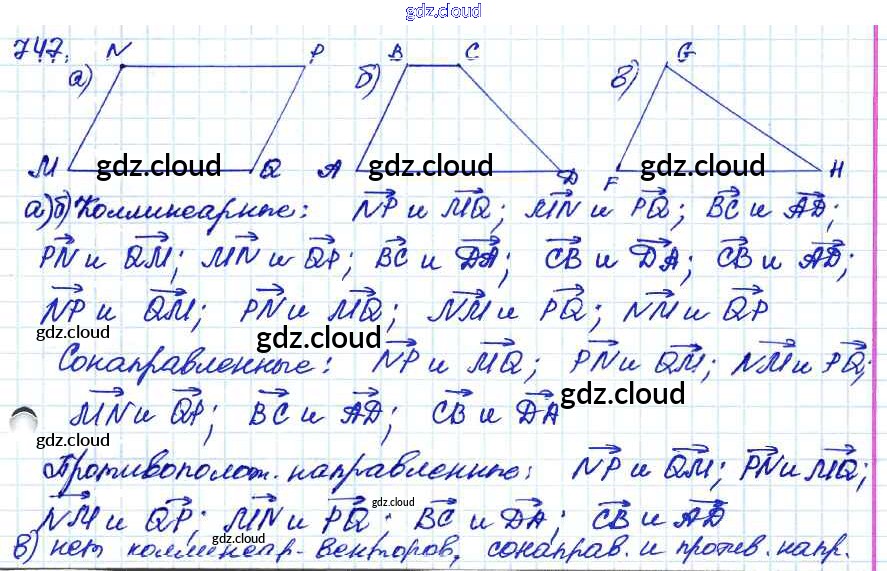 gdz.cloud
747.
а) N P M Q
б) B C A D
в) G F H
gdz.cloud gdz.cloud gdz.cloud
а)б) Коллинеарные: NP и MQ; MN и PQ; BC и AD;
PN и QM; MN и QP; BC и DA; CB и DA; CB и AD;
NP и QM; PN и MQ; NM и PQ; NM и QP
gdz.cloud gdz.cloud
Сонаправленные: NP и MQ; PN и QM; NM и PQ;
MN и QP; BC и AD; CB и DA
gdz.cloud gdz.cloud
Противополож. направленные: NP и QM; PN и MQ;
NM и QP; MN и PQ; BC и DA; CB и AD
gdz.cloud
в) нет коллинеар. векторов, сонаправ. и против. напр.